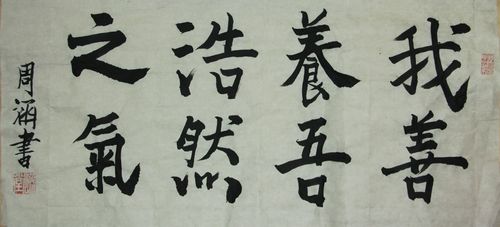 我善
養吾
浩然
之氣
周涵書